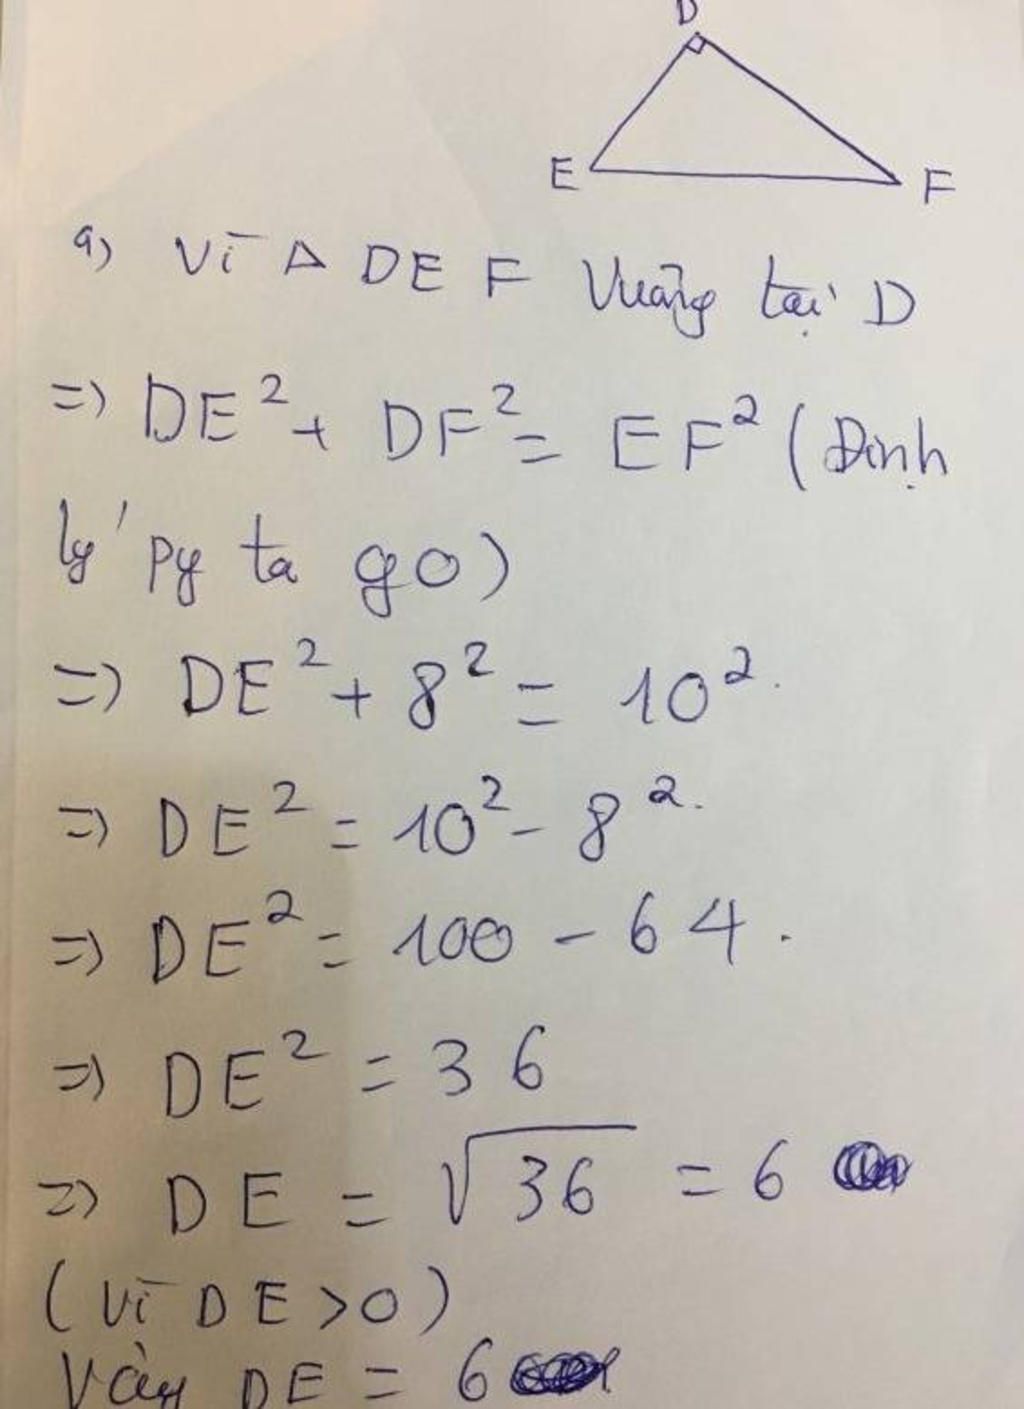 D
E
F
a) Vì Δ DEF Vuông tại D
=> DE² + DF² = EF² (Định
lý py ta go)
=> DE² + 8² = 10².
=> DE² = 10² - 8².
=> DE² = 100 - 64.
=> DE² = 36
=> DE = √36 = 6
(Vì DE > 0)
Vậy DE = 6